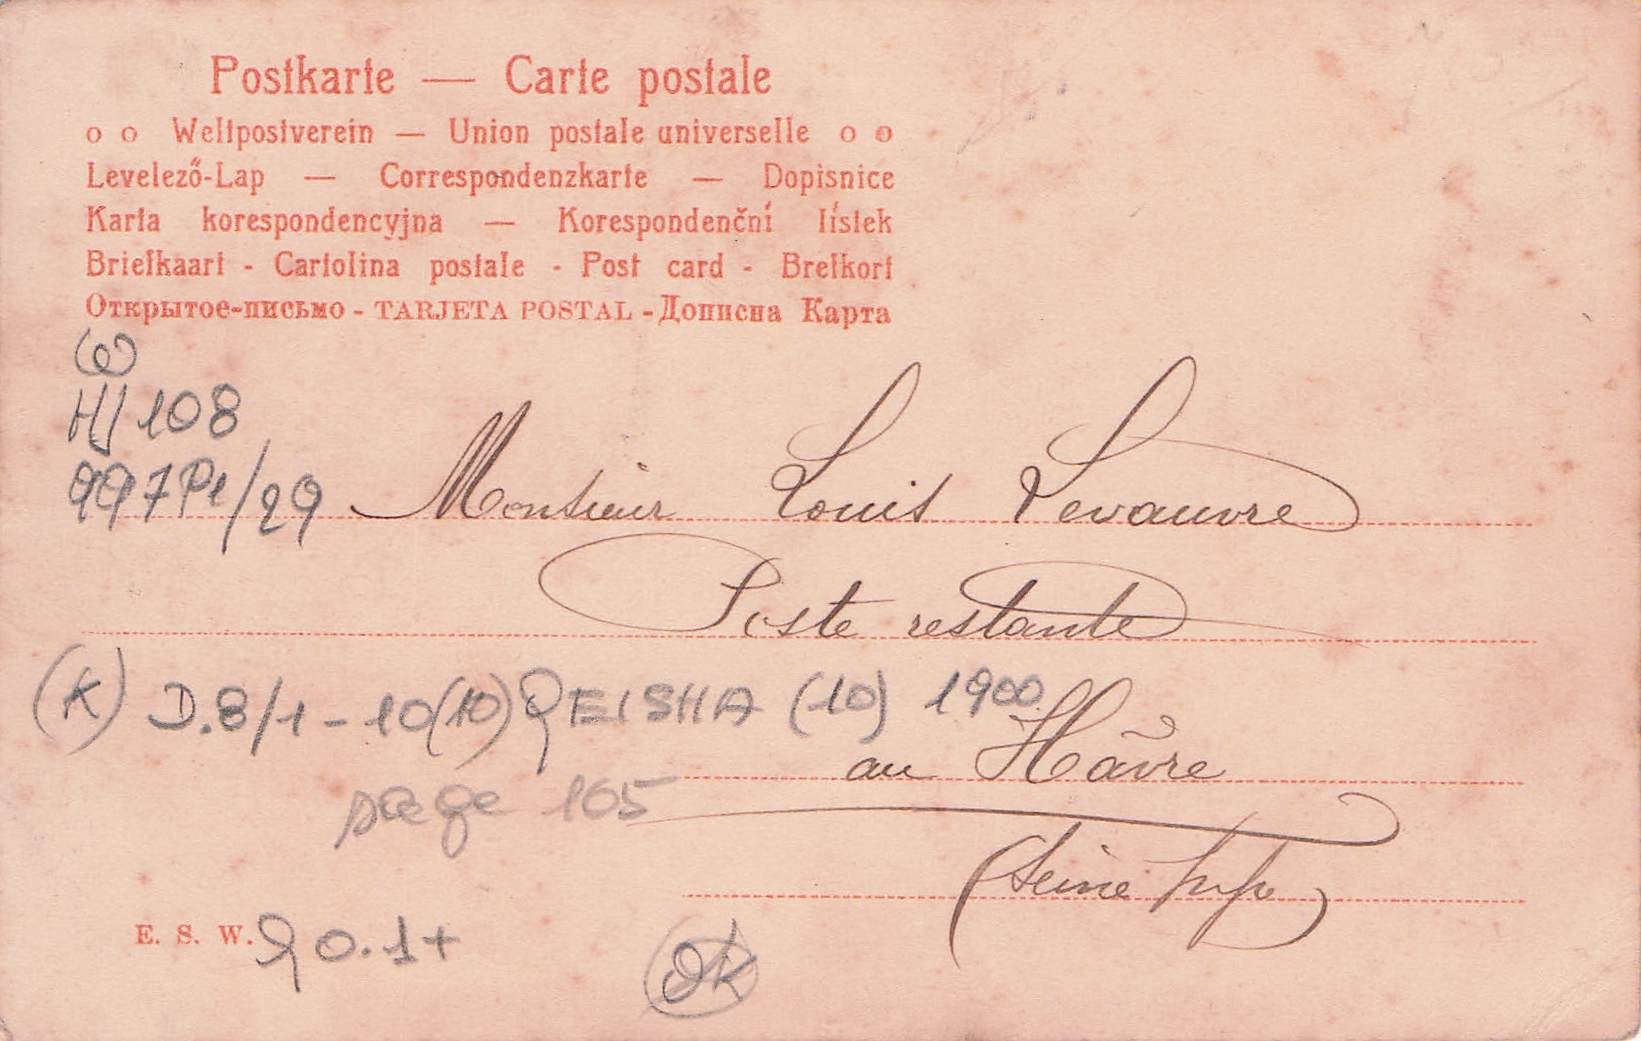 Postkarte — Carte postale
o o Weltpostverein — Union postale universelle o o
Levelező-Lap — Correspondenzkarte — Dopisnice
Karta korespondencyjna — Korespondenční lístek
Briefkaart - Cartolina postale - Post card - Brefkort
Открытое-письмо - TARJETA POSTAL - Дописна Карта
HJ 108
997Pe/29
Monsieur Louis Levauvre
Poste restante
(K) D.8/1-10(10) GEISHA (10) 1900
au Hâvre
page 105
(Seine Infre)
E. S. W. 0.1+
OK